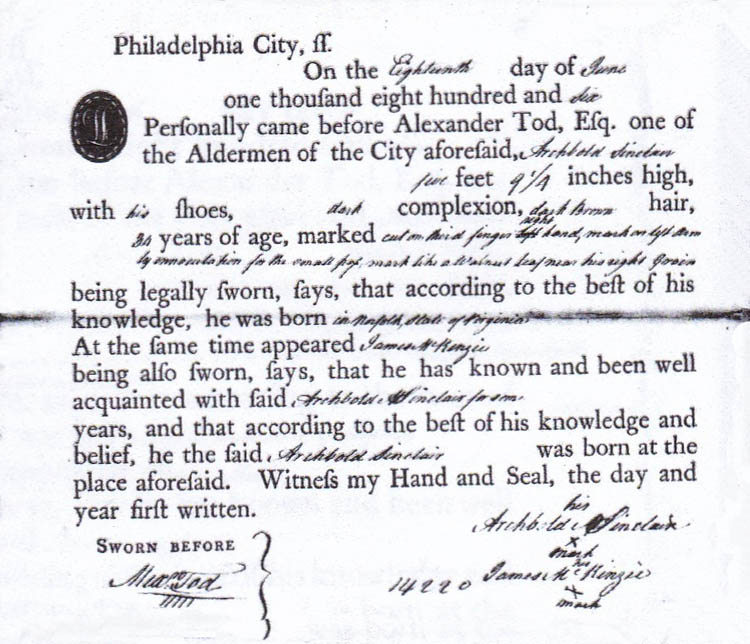 Philadelphia City, ſſ.
On the Eighteenth day of June
one thouſand eight hundred and six
Perſonally came before Alexander Tod, Eſq. one of
the Aldermen of the City aforeſaid, Archbold Sinclair
five feet 9 1/4 inches high,
with his ſhoes, dark complexion, dark Brown hair,
34 years of age, marked cut on third finger right hand, mark on left arm
by innoculation for the small pox, mark like a Walnut leaf near his right Groin
being legally ſworn, ſays, that according to the beſt of his
knowledge, he was born in Norfolk, State of Virginia
At the ſame time appeared James McKenzie
being alſo ſworn, ſays, that he has known and been well
acquainted with ſaid Archbold Sinclair for som
years, and that according to the beſt of his knowledge and
belief, he the ſaid Archbold Sinclair was born at the
place aforeſaid. Witneſs my Hand and Seal, the day and
year firſt written.
his
Archbold Sinclair
x
mark
SWORN BEFORE
Alexr Tod
14220 James McKenzie
his
x
mark